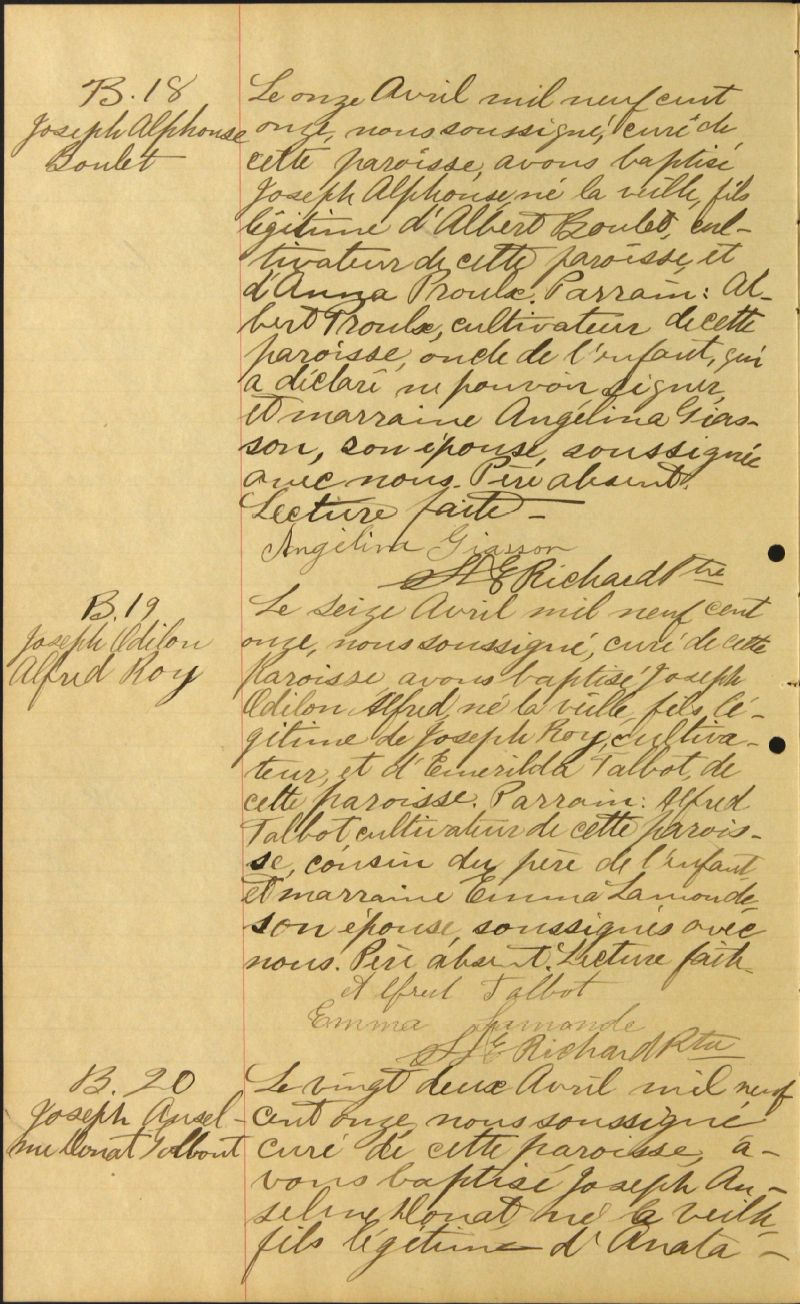 B. 18
Joseph Alphonse
Boulet
Le onze Avril mil neuf cent
onze, nous soussigné, curé de
cette paroisse, avons baptisé
Joseph Alphonse, né la veille, fils
légitime d'Albert Boulet, cul-
tivateur de cette paroisse, et
d'Anna Proulx. Parrain: Al-
bert Proulx, cultivateur de cette
paroisse, oncle de l'enfant, qui
a déclaré ne pouvoir signer,
et marraine Angélina Gias-
son, son épouse, soussignée
avec nous. Père absent.
Lecture faite -
Angélina Giasson
Richard Ptre
B. 19
Joseph Odilon
Alfred Roy
Le seize Avril mil neuf cent
onze, nous soussigné, curé de cette
Paroisse avons baptisé Joseph
Odilon Alfred, né la veille, fils lé-
gitime de Joseph Roy, cultiva-
teur, et d'Emerilda Talbot, de
cette paroisse. Parrain: Alfred
Talbot, cultivateur de cette parois-
se, cousin du père de l'enfant
et marraine Emma Lamonde,
son épouse, soussignés avec
nous. Père absent. Lecture faite
Alfred Talbot
Emma Lamonde
Richard Ptre
B. 20
Joseph Ansel-
me Donat Talbout
Le vingt deux Avril mil neuf
cent onze, nous soussigné
curé de cette paroisse, a-
vons baptisé Joseph An-
selme Donat, né la veille,
fils légitime d'Anata-